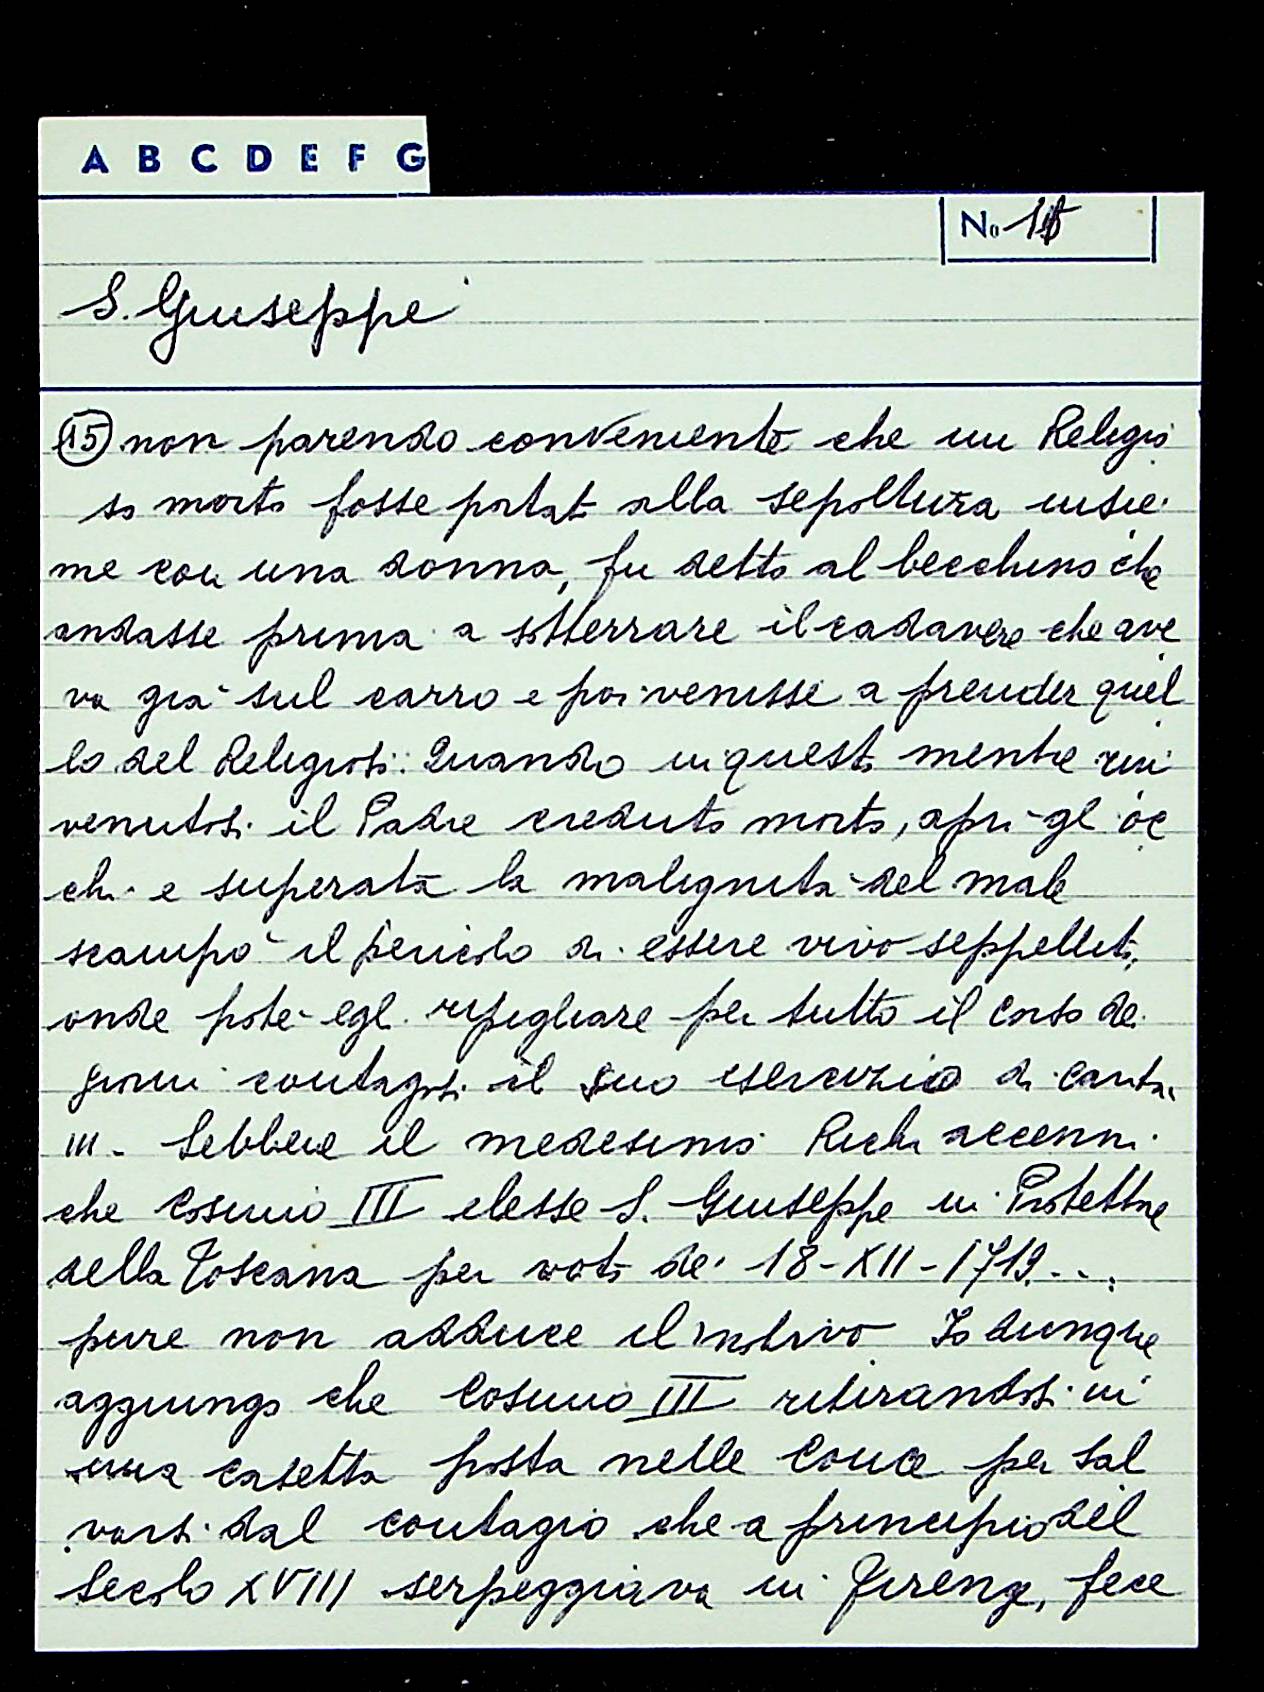 A B C D E F G
No 15
S. Giuseppe
(15) non parendo conveniente che un Religio
so morto fosse portat alla sepoltura insie
me con una donna, fu detto al becchino che
andasse prima a sotterrare il cadavere che ave
va già sul carro e poi venisse a prender quel
lo del Religioso. Quando in questo mentre rin
venutosi il Padre creduto morto, aprì gl oc
chi e superata la malignità del male
scampò il pericolo di essere vivo seppellito,
onde poté egli ripigliare per tutto il corso dei
giorni contagiosi il suo esercizio di carità
III. Sebbene il medesimo Richi accenni
che Cosimo III elesse S. Giuseppe in Protettore
della Toscana per voto de' 18-XII-1719...
pure non adduce il motivo Io dunque
aggiungo che Cosimo III ritirandosi in
una casetta posta nelle Conce per sal
varsi dal contagio che a principio del
Secolo XVIII serpeggiava in Firenze, fece